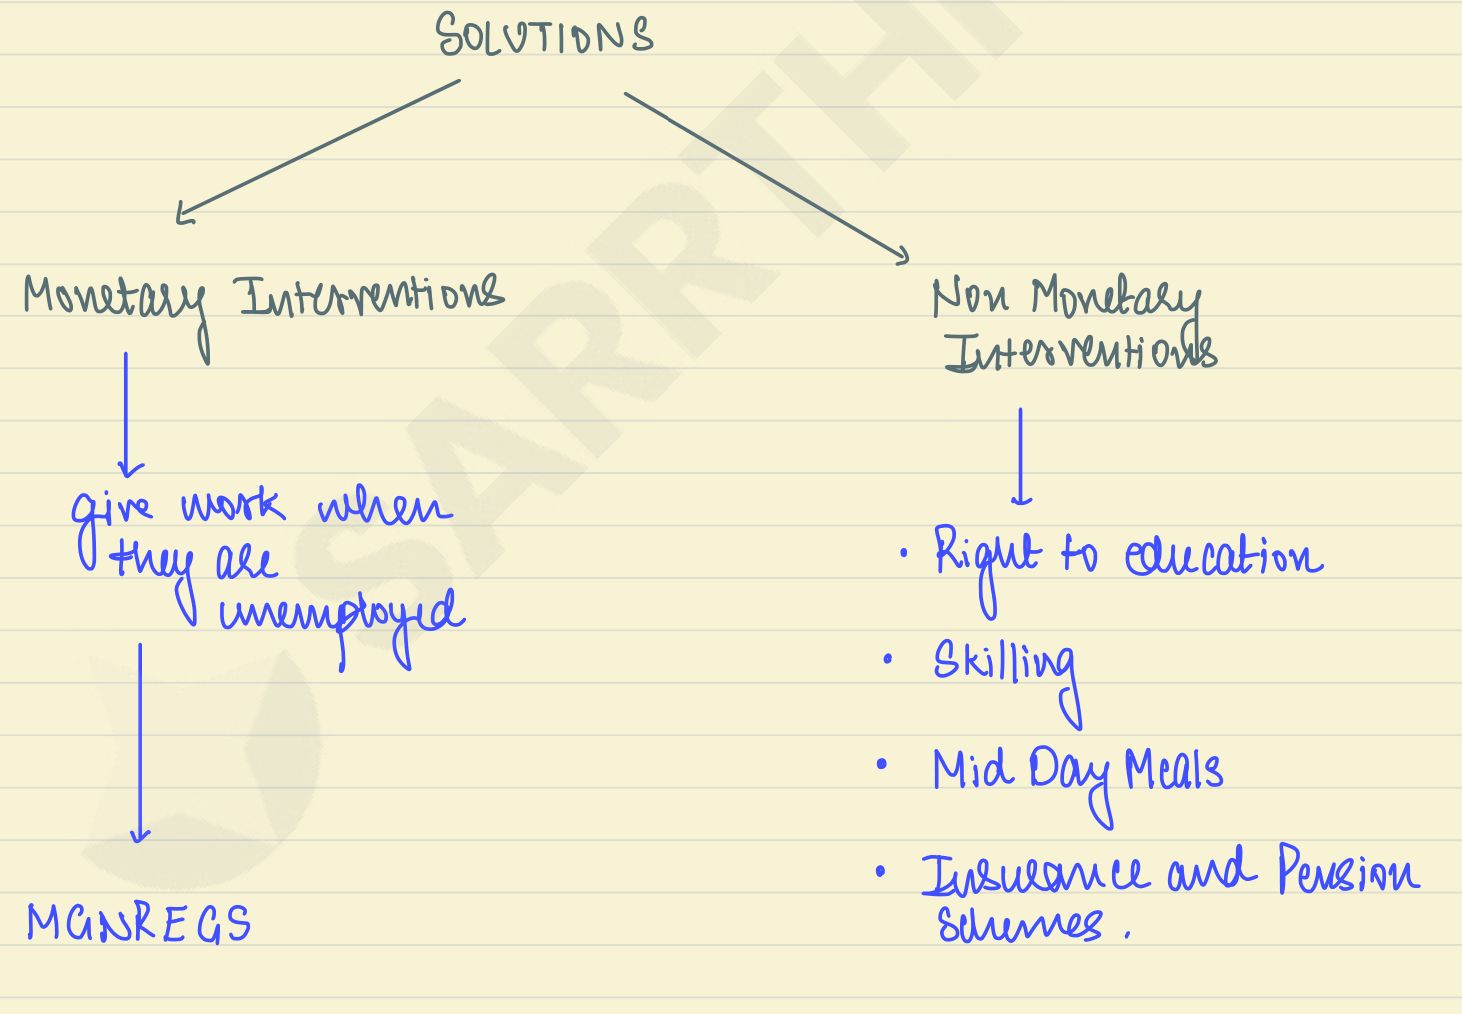 SOLUTIONS
Monetary Interventions
give work when
they are
unemployed
MGNREGS
Non Monetary
Interventions
• Right to education
• Skilling
• Mid Day Meals
• Insurance and Pension
Schemes.
SARRTHI